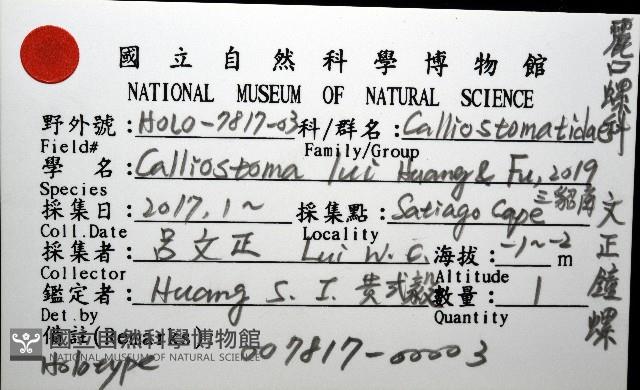 國立自然科學博物館
NATIONAL MUSEUM OF NATURAL SCIENCE
野外號：HOLO-7817-03 科/群名：Calliostomatidae
Field# Family/Group
學名：Calliostoma lui Huang & Fu, 2019
Species
三貂角
採集日：2017.1~ 採集點：Satiago Cape
Coll.Date Locality
採集者：呂文正 Lui W. C. 海拔：-1~-2 m
Collector Altitude
鑑定者：Huang S. I. 黃式毅 數量：1
Det.by Quantity
備註(Remarks)
Holotype 007817-00003
麗口螺科 文正鐘螺
國立自然科學博物館
NATIONAL MUSEUM OF NATURAL SCIENCE